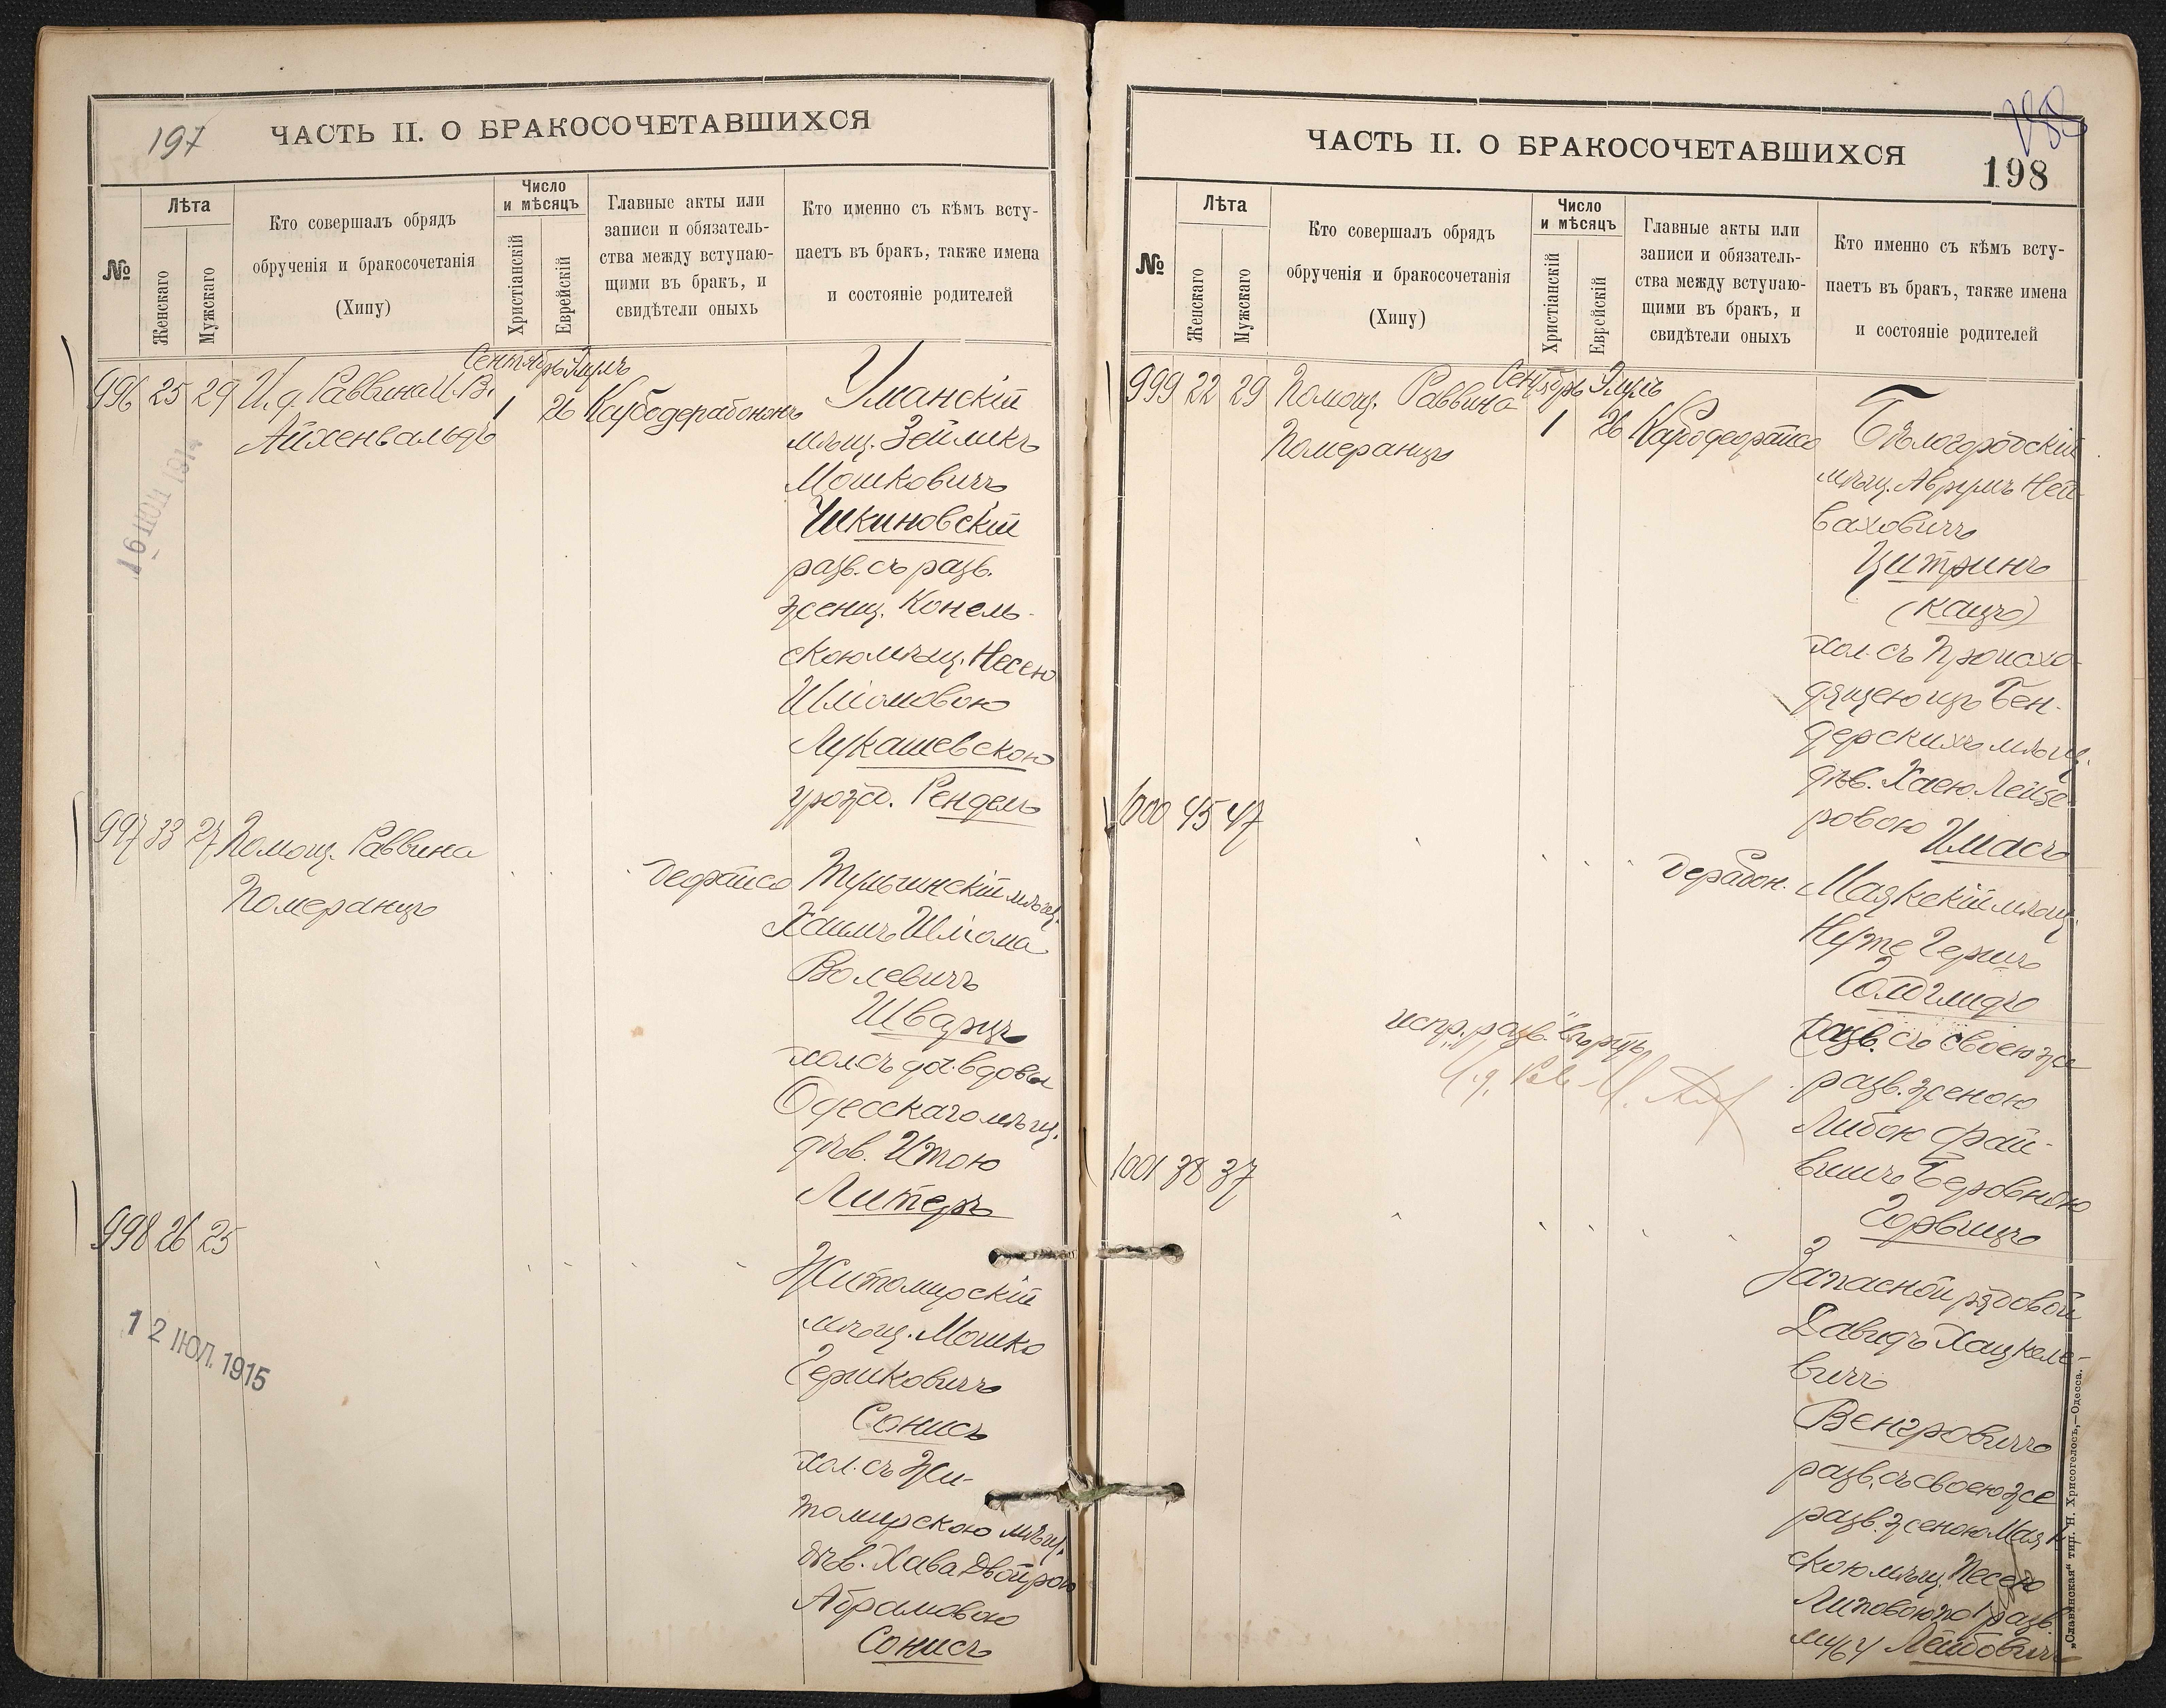 197
ЧАСТЬ II. О БРАКОСОЧЕТАВШИХСЯ
№
Лѣта
Женскаго
Мужскаго
Кто совершалъ обрядъ
обрученія и бракосочетанія
(Хипу)
Число
и мѣсяцъ
Христіанскій
Еврейскій
Главные акты или
записи и обязатель-
ства между вступаю-
щими въ бракъ, и
свидѣтели оныхъ
Кто именно съ кѣмъ всту-
паетъ въ бракъ, также имена
и состояніе родителей
Сентябрь Элулъ
996 25 29 И.д. Раввина И.В. 1 26
Айхенвальдъ
Уманскій
мѣщ. Зейликъ
Мошковичъ
Чикиновскій
разв. съ разв.
женщ. Конель-
скою мѣщ. Несею
Шліомовою
Лукашевскою
урожд. Рендель
997 33 27 Помощ. Раввина
Померанцъ
Тульчинскій мѣщ.
Хаимъ Шліома
Волевичъ
Шварцъ
хол. съ до. вдовы
Одесскаго мѣщ.
дѣв. Итою
Литеръ
998 26 25
Житомирскій
мѣщ. Мошко
Гершковичъ
Сонисъ
хол. съ Жи-
томирскою мѣщ.
дѣв. Хава Двойрою
Абрамовою
Сонисъ
12 ІЮЛ. 1915
ЧАСТЬ II. О БРАКОСОЧЕТАВШИХСЯ
198
№
Лѣта
Женскаго
Мужскаго
Кто совершалъ обрядъ
обрученія и бракосочетанія
(Хипу)
Число
и мѣсяцъ
Христіанскій
Еврейскій
Главные акты или
записи и обязатель-
ства между вступаю-
щими въ бракъ, и
свидѣтели оныхъ
Кто именно съ кѣмъ всту-
паетъ въ бракъ, также имена
и состояніе родителей
Сентябрь Элулъ
999 22 29 Помощ. Раввина 1 26
Померанцъ
Бѣлогородскій
мѣщ. Аврумъ Ней-
ваховичъ
Цитринъ
(Кацъ)
хол. съ происхо-
дящею изъ Бен-
дерскихъ мѣщ.
дѣв. Хаею Лейзе-
ровою Имасъ
1000 45 47
Маякскій мѣщ.
Нуте Гершъ
разв. съ своею же
разв. женою
Либою Фай-
вишъ Беровною
Горвицъ
испр. „разв.“ вѣрно
1001 38 37
Запасной рядовой
Давидъ Хацкеле-
вичъ
Венгровичъ
разв. съ своею же
разв. женою Маяк
скою мѣщ. Песею
Липовою по 1 разв.
мужу Лейбовичъ
„Славянская“ тип. Н. Хрисогелосъ,—Одесса.